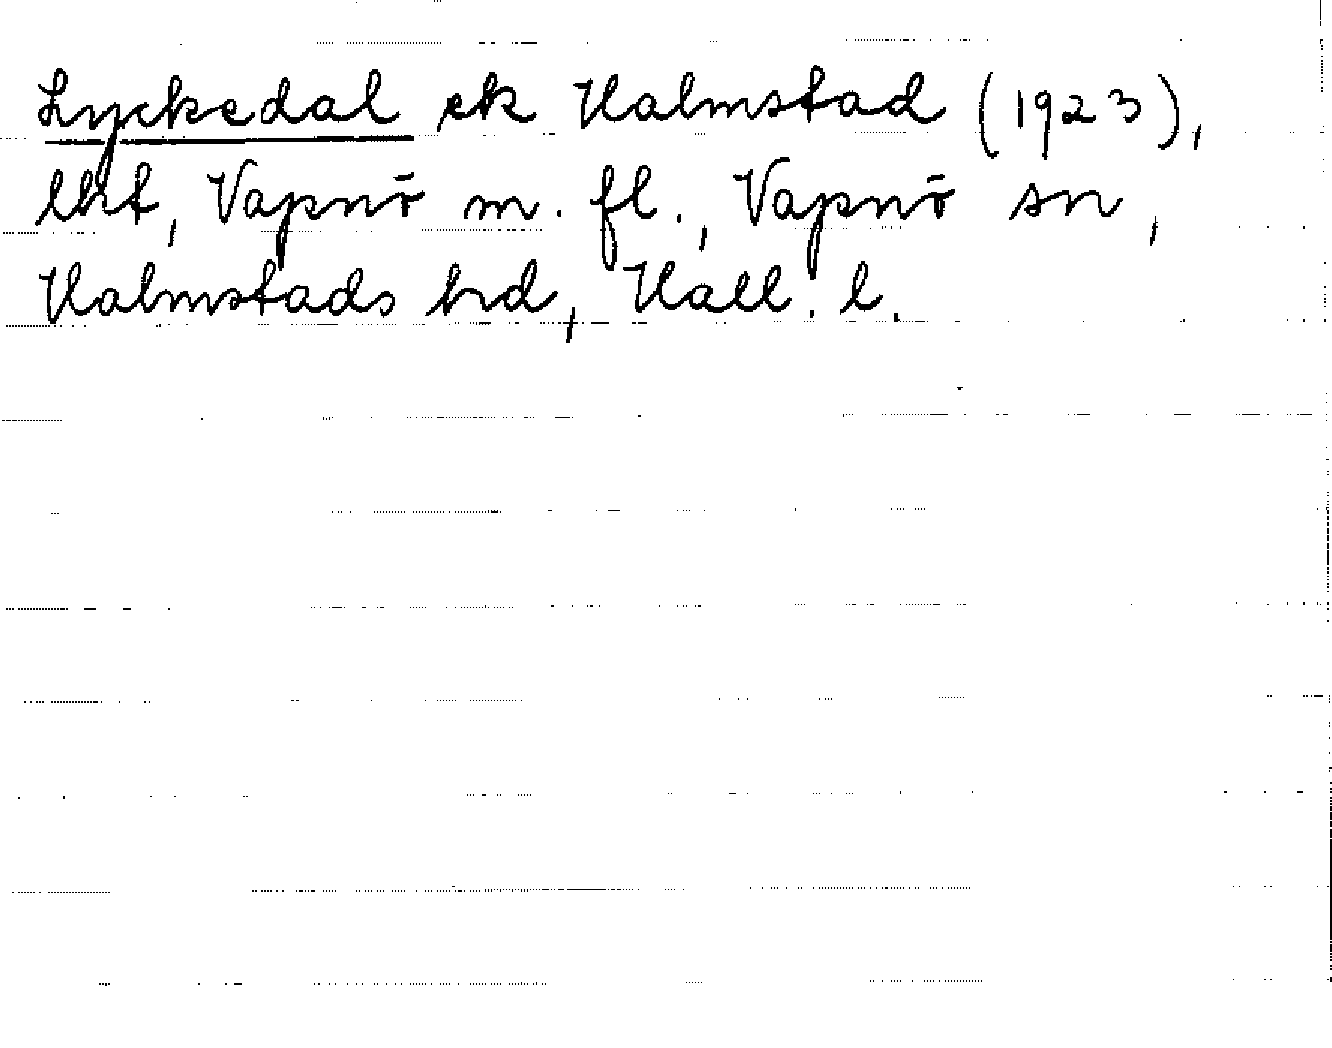 Lyckedal ek Halmstad (1923),
lht, Vapnö m. fl., Vapnö sn,
Halmstads hrd, Hall. l.